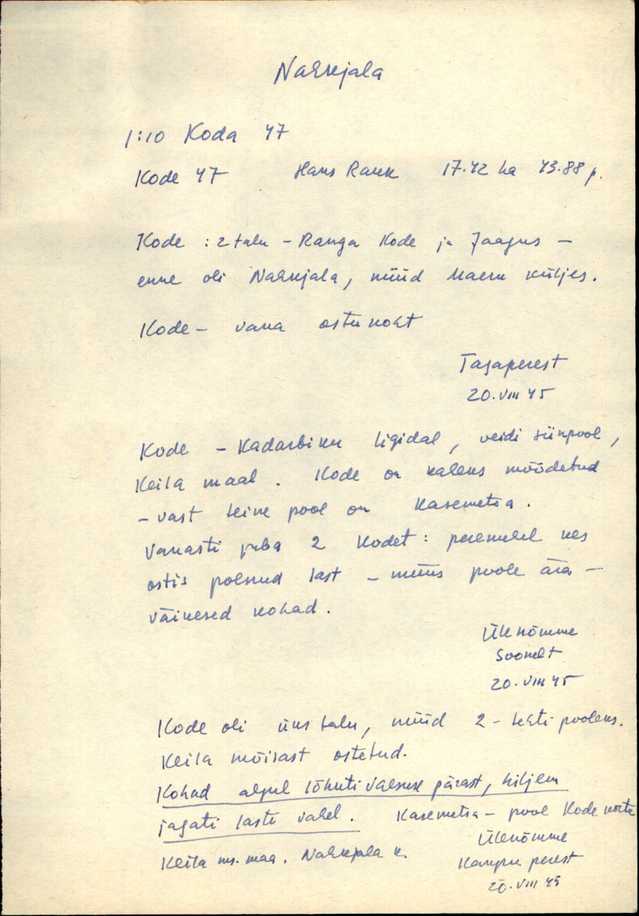 Nahkjala
1:10 Koda 47
Kode 47 Hans Rauk 17.42 ha 43.88 p.
Kode : 2 talu - Ranga Kode ja Jaagus -
enne oli Nahkjala, nüüd Maeru küljes.
Kode - vana ostukoht
Tagaperest
20.VIII 45
Kode - Kadarbiku ligidal, veidi siinpool,
Keila maal. Kode on kaheks mõõdetud
- vast teine pool on Kasemetsa.
Vanasti juba 2 Kodet: peremehel kes
ostis polnud last - müüs poole ära -
väikesed kohad.
Ülenõmme
Soonelt
20.VIII 45
Kode oli üks talu, nüüd 2 - tehti pooleks.
Keila mõisast ostetud.
Kohad algul lõhuti vaesuse pärast, hiljem
jagati laste vahel. Kasemetsa - pool Kode
Keila ms. maa. Nahkjala k.
Ülenõmme
perest
20.VIII 45